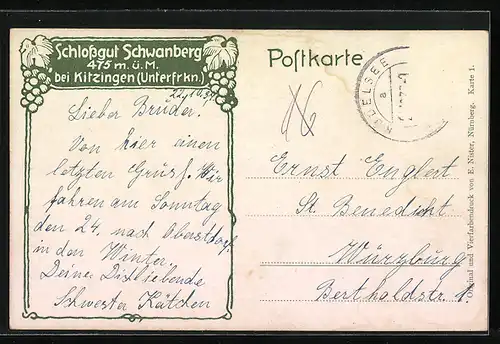 Schloßgut Schwanberg
475 m. ü. M.
bei Kitzingen (Unterfrkn.)
Lieber Bruder.
Von hier einen
letzten Gruß. Wir
fahren am Sonntag
den 24. nach Oberstdorf
in den Winter.
Deine Dichliebende
Schwester Kätchen
Postkarte
RÜDELSEE
a
Ernst Englert
St. Benedicht
Würzburg
Bertholdstr. 1.
Original und Vierfarbendruck von E. Nister, Nürnberg. Karte 1.